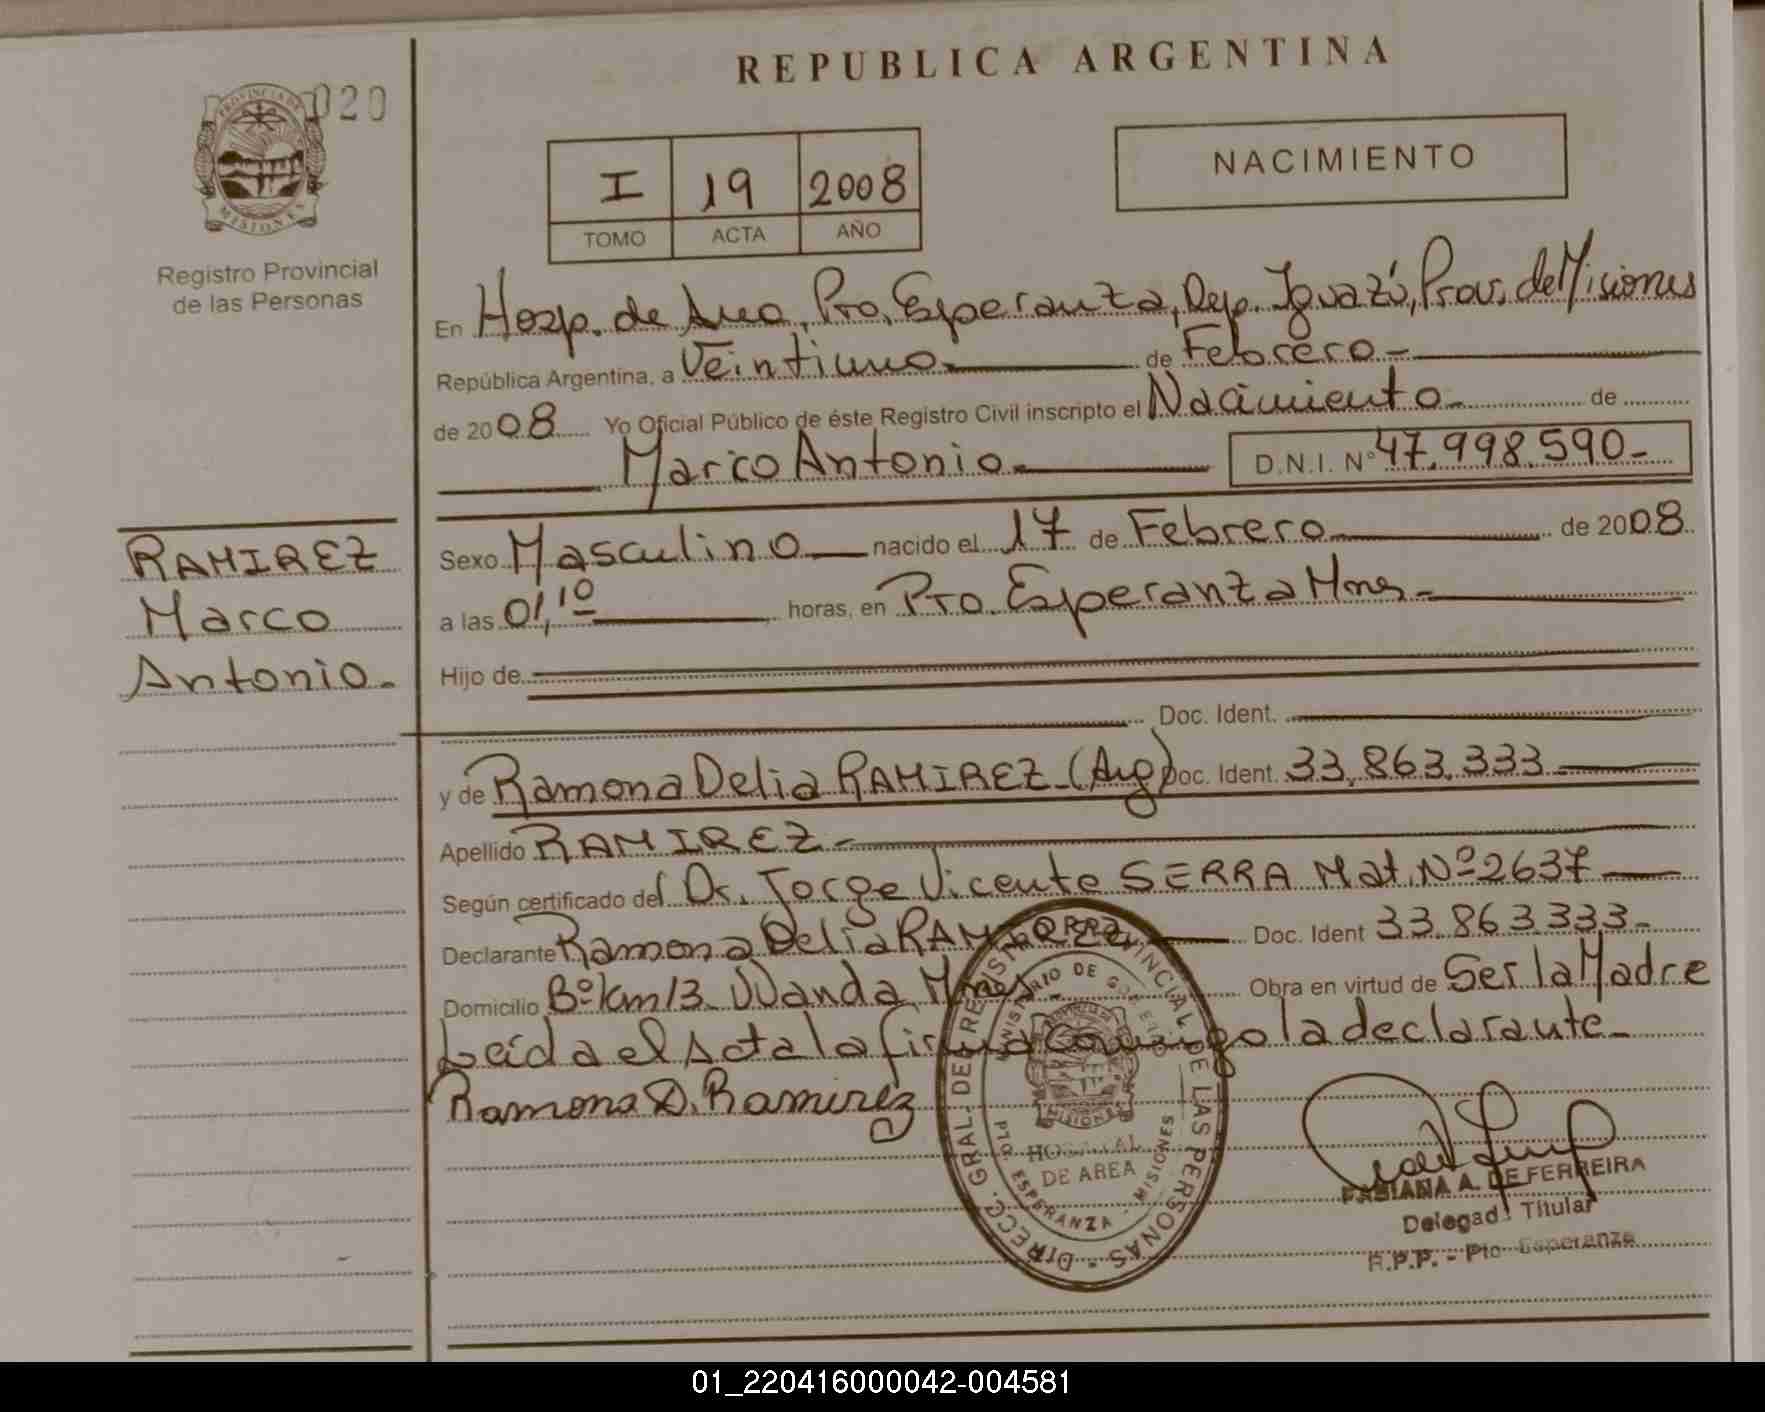 020
PROVINCIA DE
MISIONES
Registro Provincial
de las Personas
REPUBLICA ARGENTINA
I 19 2008
TOMO ACTA AÑO
NACIMIENTO
En Hosp. de Area, Pto. Esperanza, Dep. Iguazú, Prov. de Misiones
República Argentina, a Veintiuno.- de Febrero.-
de 2008 Yo Oficial Público de éste Registro Civil inscripto el Nacimiento.- de
Marco Antonio.- D.N.I. Nº 47.998.590-
RAMIREZ
Marco
Antonio.-
Sexo Masculino nacido el 17 de Febrero de 2008
a las 01,10 horas, en Pto. Esperanza Mnes.-
Hijo de
Doc. Ident.
y de Ramona Delia RAMIREZ.(Arg) Doc. Ident. 33.863.333
Apellido RAMIREZ.-
Según certificado del Dr. Jorge Vicente SERRA Mat. Nº 2637
Declarante Ramona Delia RAMIREZ Doc. Ident 33.863.333.-
Domicilio Bº km 13. Wanda, Mnes.- Obra en virtud de Ser la Madre
Leída el Acta la firma Conmigo la declarante.-
Ramona D. Ramirez
DIRECC. GRAL. DEL REGISTRO PROVINCIAL DE LAS PERSONAS
MINISTERIO DE GOBIERNO
MISIONES
HOSPITAL
DE AREA
PTO. ESPERANZA - MISIONES
FABIANA A. DE FERREIRA
Delegada Titular
R.P.P. - Pto Esperanza
01_220416000042-004581